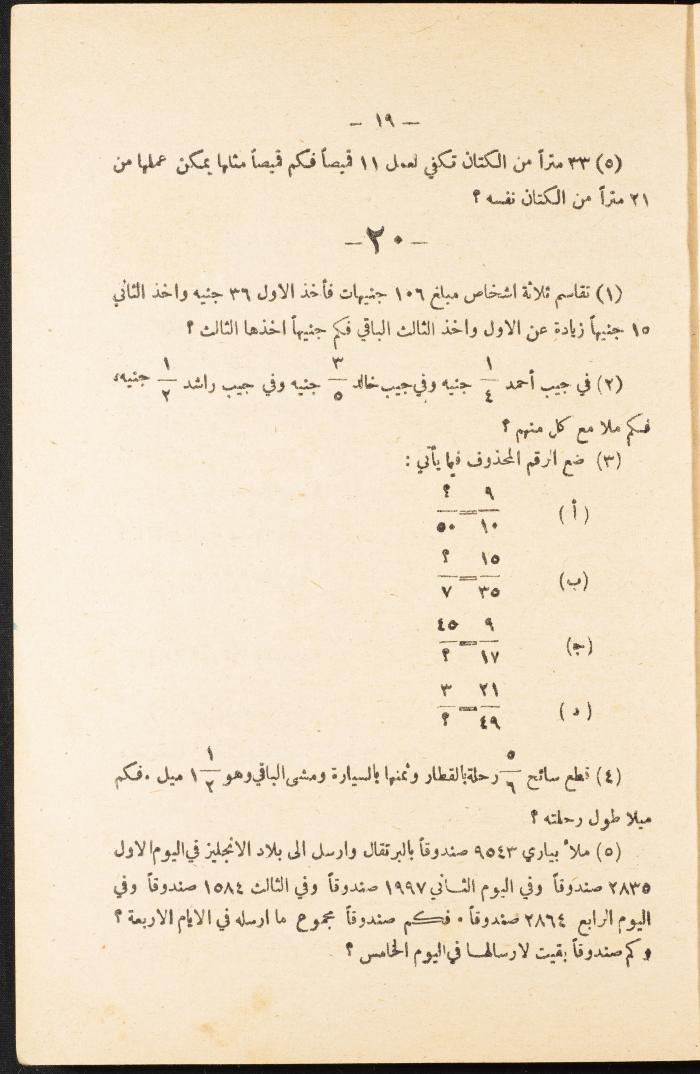 — ١٩ —
(٥) ٣٣ متراً من الكتان تكفي لعمل ١١ قيصاً فكم قيصاً مثلها يمكن عملها من
٢١ متراً من الكتان نفسه ؟
— ٢٠ —
(١) تقاسم ثلاثة اشخاص مبلغ ١٠٦ جنيهات فأخذ الاول ٣٦ جنيه واخذ الثاني
١٥ جنيهاً زيادة عن الاول واخذ الثالث الباقي فكم جنيهاً اخذها الثالث ؟
(٢) في جيب أحمد ١/٤ جنيه وفي جيب خالد ٣/٥ جنيه وفي جيب راشد ١/٢ جنيه،
فكم ملا مع كل منهم ؟
(٣) ضع الرقم المحذوف فيما يأتي :
(أ) ٩/١٠ = ؟/٥٠
(ب) ١٥/٣٥ = ؟/٧
(ج) ٩/١٧ = ٤٥/؟
(د) ٢١/٤٩ = ٣/؟
(٤) قطع سائح ٥/٦ رحلة بالقطار وثمنها بالسيارة ومشى الباقي وهو ١ ١/٢ ميل . فكم
ميلا طول رحلته ؟
(٥) ملأ بياري ٩٥٤٣ صندوقاً بالبرتقال وارسل الى بلاد الانجليز في اليوم الاول
٢٨٣٥ صندوقاً وفي اليوم الثاني ١٩٩٧ صندوقاً وفي الثالث ١٥٨٤ صندوقاً وفي
اليوم الرابع ٢٨٦٤ صندوقاً . فكم صندوقاً مجموع ما ارسله في الايام الاربعة ؟
وكم صندوقاً بقيت لارسالها في اليوم الخامس ؟